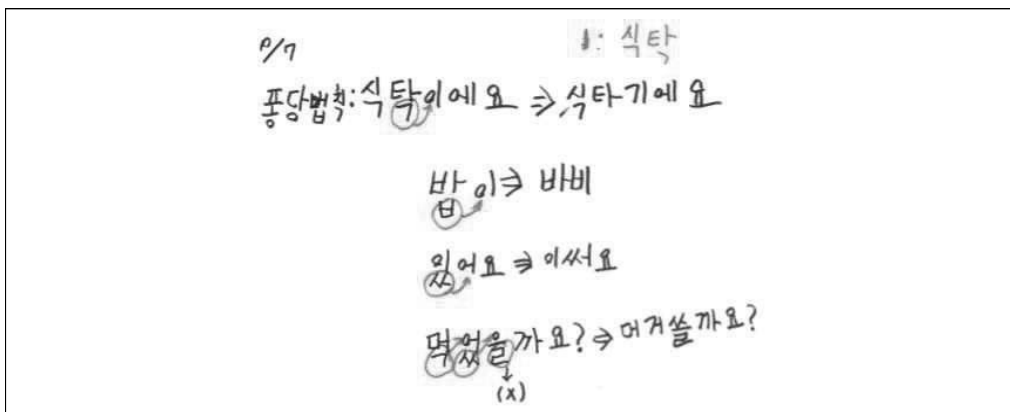 1: 식탁
퐁당법칙: 식탁이에요 ⇒ 식타기에요
밥이 ⇒ 바비
있어요 ⇒ 이써요
먹었을까요? ⇒ 머거쓸까요?
(x)